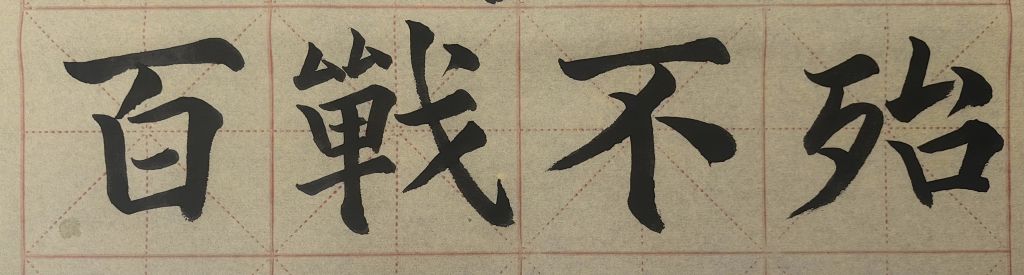 百戰不殆